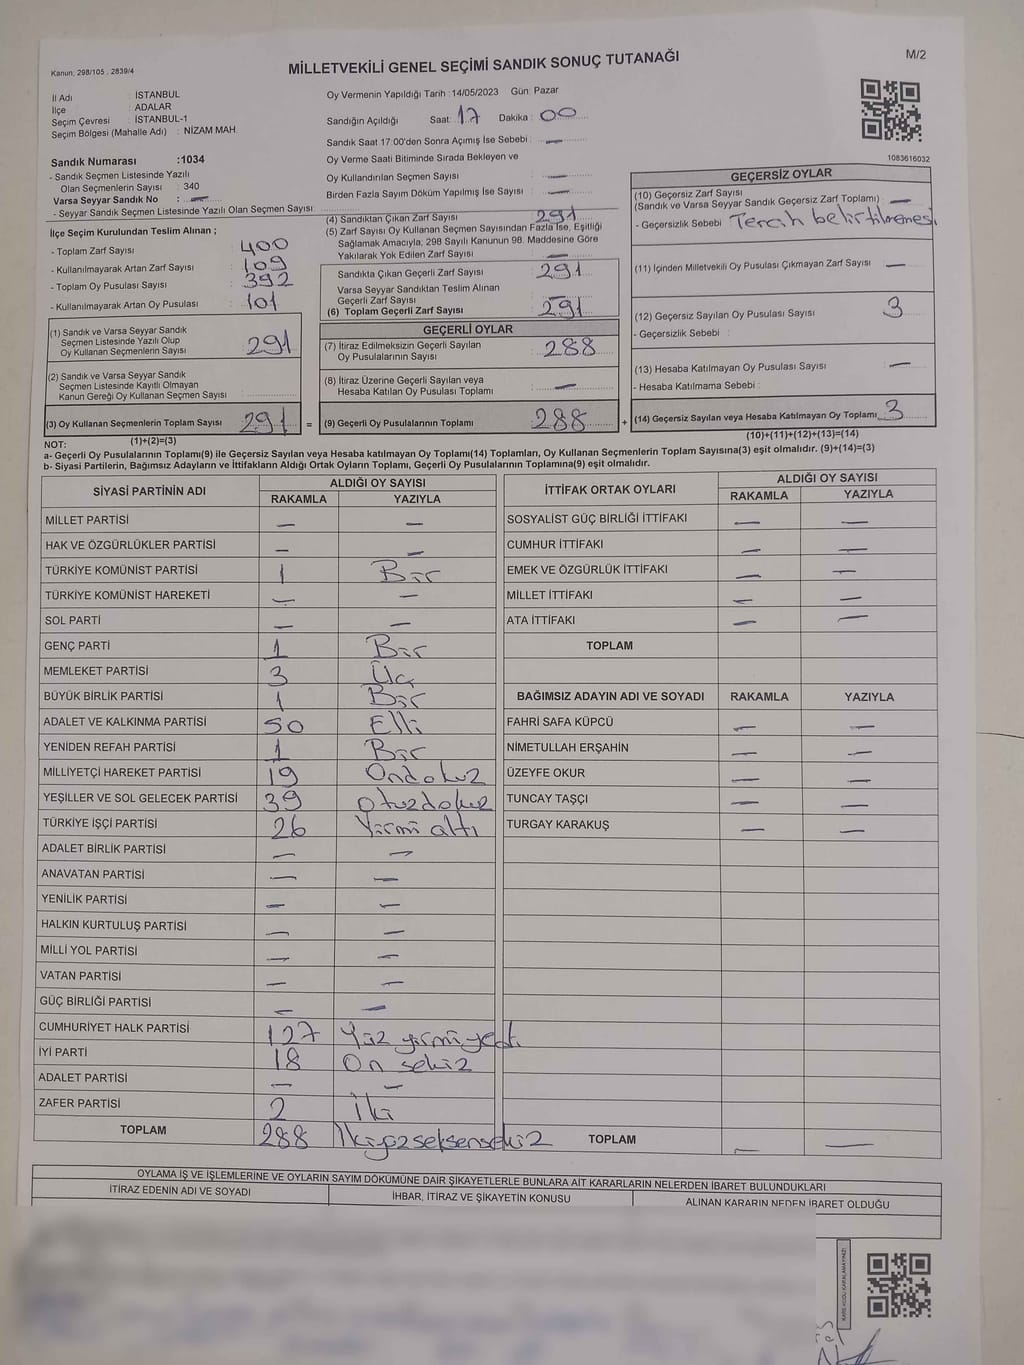 Kanun, 298/105 . 2839/4
MİLLETVEKİLİ GENEL SEÇİMİ SANDIK SONUÇ TUTANAĞI
M/2
İl Adı : İSTANBUL
İlçe : ADALAR
Seçim Çevresi : İSTANBUL-1
Seçim Bölgesi (Mahalle Adı) : NİZAM MAH.
Sandık Numarası :1034
- Sandık Seçmen Listesinde Yazılı
Olan Seçmenlerin Sayısı : 340
Varsa Seyyar Sandık No : —
- Seyyar Sandık Seçmen Listesinde Yazılı Olan Seçmen Sayısı :
Oy Vermenin Yapıldığı Tarih :14/05/2023 Gün: Pazar
Sandığın Açıldığı Saat: 17 Dakika : 00
Sandık Saat 17:00'den Sonra Açılmış İse Sebebi : —
Oy Verme Saati Bitiminde Sırada Bekleyen ve
Oy Kullandırılan Seçmen Sayısı : —
Birden Fazla Sayım Döküm Yapılmış İse Sayısı : —
1083616032
İlçe Seçim Kurulundan Teslim Alınan ;
- Toplam Zarf Sayısı : 400
- Kullanılmayarak Artan Zarf Sayısı : 109
- Toplam Oy Pusulası Sayısı : 392
- Kullanılmayarak Artan Oy Pusulası : 101
(1) Sandık ve Varsa Seyyar Sandık
Seçmen Listesinde Yazılı Olup
Oy Kullanan Seçmenlerin Sayısı : 291
(2) Sandık ve Varsa Seyyar Sandık
Seçmen Listesinde Kayıtlı Olmayan
Kanun Gereği Oy Kullanan Seçmen Sayısı :
(3) Oy Kullanan Seçmenlerin Toplam Sayısı : 291 =
(1)+(2)=(3)
(4) Sandıktan Çıkan Zarf Sayısı : 291
(5) Zarf Sayısı Oy Kullanan Seçmen Sayısından Fazla İse, Eşitliği
Sağlamak Amacıyla, 298 Sayılı Kanunun 98. Maddesine Göre
Yakılarak Yok Edilen Zarf Sayısı : —
Sandıkta Çıkan Geçerli Zarf Sayısı : 291
Varsa Seyyar Sandıktan Teslim Alınan
Geçerli Zarf Sayısı : —
(6) Toplam Geçerli Zarf Sayısı : 291
GEÇERLİ OYLAR
(7) İtiraz Edilmeksizin Geçerli Sayılan
Oy Pusulalarının Sayısı : 288
(8) İtiraz Üzerine Geçerli Sayılan veya
Hesaba Katılan Oy Pusulası Toplamı : —
(9) Geçerli Oy Pusulalarının Toplamı : 288 +
GEÇERSİZ OYLAR
(10) Geçersiz Zarf Sayısı
(Sandık ve Varsa Seyyar Sandık Geçersiz Zarf Toplamı) : —
- Geçersizlik Sebebi : Tercih belirtilmemesi
(11) İçinden Milletvekili Oy Pusulası Çıkmayan Zarf Sayısı : —
(12) Geçersiz Sayılan Oy Pusulası Sayısı : 3
- Geçersizlik Sebebi :
(13) Hesaba Katılmayan Oy Pusulası Sayısı : —
- Hesaba Katılmama Sebebi :
(14) Geçersiz Sayılan veya Hesaba Katılmayan Oy Toplamı : 3
(10)+(11)+(12)+(13)=(14)
NOT:
a- Geçerli Oy Pusulalarının Toplamı(9) ile Geçersiz Sayılan veya Hesaba katılmayan Oy Toplamı(14) Toplamları, Oy Kullanan Seçmenlerin Toplam Sayısına(3) eşit olmalıdır. (9)+(14)=(3)
b- Siyasi Partilerin, Bağımsız Adayların ve İttifakların Aldığı Ortak Oyların Toplamı, Geçerli Oy Pusulalarının Toplamına(9) eşit olmalıdır.
SİYASİ PARTİNİN ADI ALDIĞI OY SAYISI
RAKAMLA YAZIYLA
MİLLET PARTİSİ — —
HAK VE ÖZGÜRLÜKLER PARTİSİ — —
TÜRKİYE KOMÜNİST PARTİSİ 1 Bir
TÜRKİYE KOMÜNİST HAREKETİ — —
SOL PARTİ — —
GENÇ PARTİ 1 Bir
MEMLEKET PARTİSİ 3 Üç
BÜYÜK BİRLİK PARTİSİ 1 Bir
ADALET VE KALKINMA PARTİSİ 50 Elli
YENİDEN REFAH PARTİSİ 1 Bir
MİLLİYETÇİ HAREKET PARTİSİ 19 Ondokuz
YEŞİLLER VE SOL GELECEK PARTİSİ 39 otuzdokuz
TÜRKİYE İŞÇİ PARTİSİ 26 Yirmi altı
ADALET BİRLİK PARTİSİ — —
ANAVATAN PARTİSİ — —
YENİLİK PARTİSİ — —
HALKIN KURTULUŞ PARTİSİ — —
MİLLİ YOL PARTİSİ — —
VATAN PARTİSİ — —
GÜÇ BİRLİĞİ PARTİSİ — —
CUMHURİYET HALK PARTİSİ 127 Yüz yirmiyedi
İYİ PARTİ 18 On sekiz
ADALET PARTİSİ — —
ZAFER PARTİSİ 2 İki
TOPLAM 288 İkiyüzseksensekiz
İTTİFAK ORTAK OYLARI ALDIĞI OY SAYISI
RAKAMLA YAZIYLA
SOSYALİST GÜÇ BİRLİĞİ İTTİFAKI — —
CUMHUR İTTİFAKI — —
EMEK VE ÖZGÜRLÜK İTTİFAKI — —
MİLLET İTTİFAKI — —
ATA İTTİFAKI — —
TOPLAM
BAĞIMSIZ ADAYIN ADI VE SOYADI RAKAMLA YAZIYLA
FAHRİ SAFA KÜPCÜ — —
NİMETULLAH ERŞAHİN — —
ÜZEYFE OKUR — —
TUNCAY TAŞÇI — —
TURGAY KARAKUŞ — —
TOPLAM — —
OYLAMA İŞ VE İŞLEMLERİNE VE OYLARIN SAYIM DÖKÜMÜNE DAİR ŞİKAYETLERLE BUNLARA AİT KARARLARIN NELERDEN İBARET BULUNDUKLARI
İTİRAZ EDENİN ADI VE SOYADI İHBAR, İTİRAZ VE ŞİKAYETİN KONUSU ALINAN KARARIN NEDEN İBARET OLDUĞU
KARE KODU KARALAMAYINIZ!